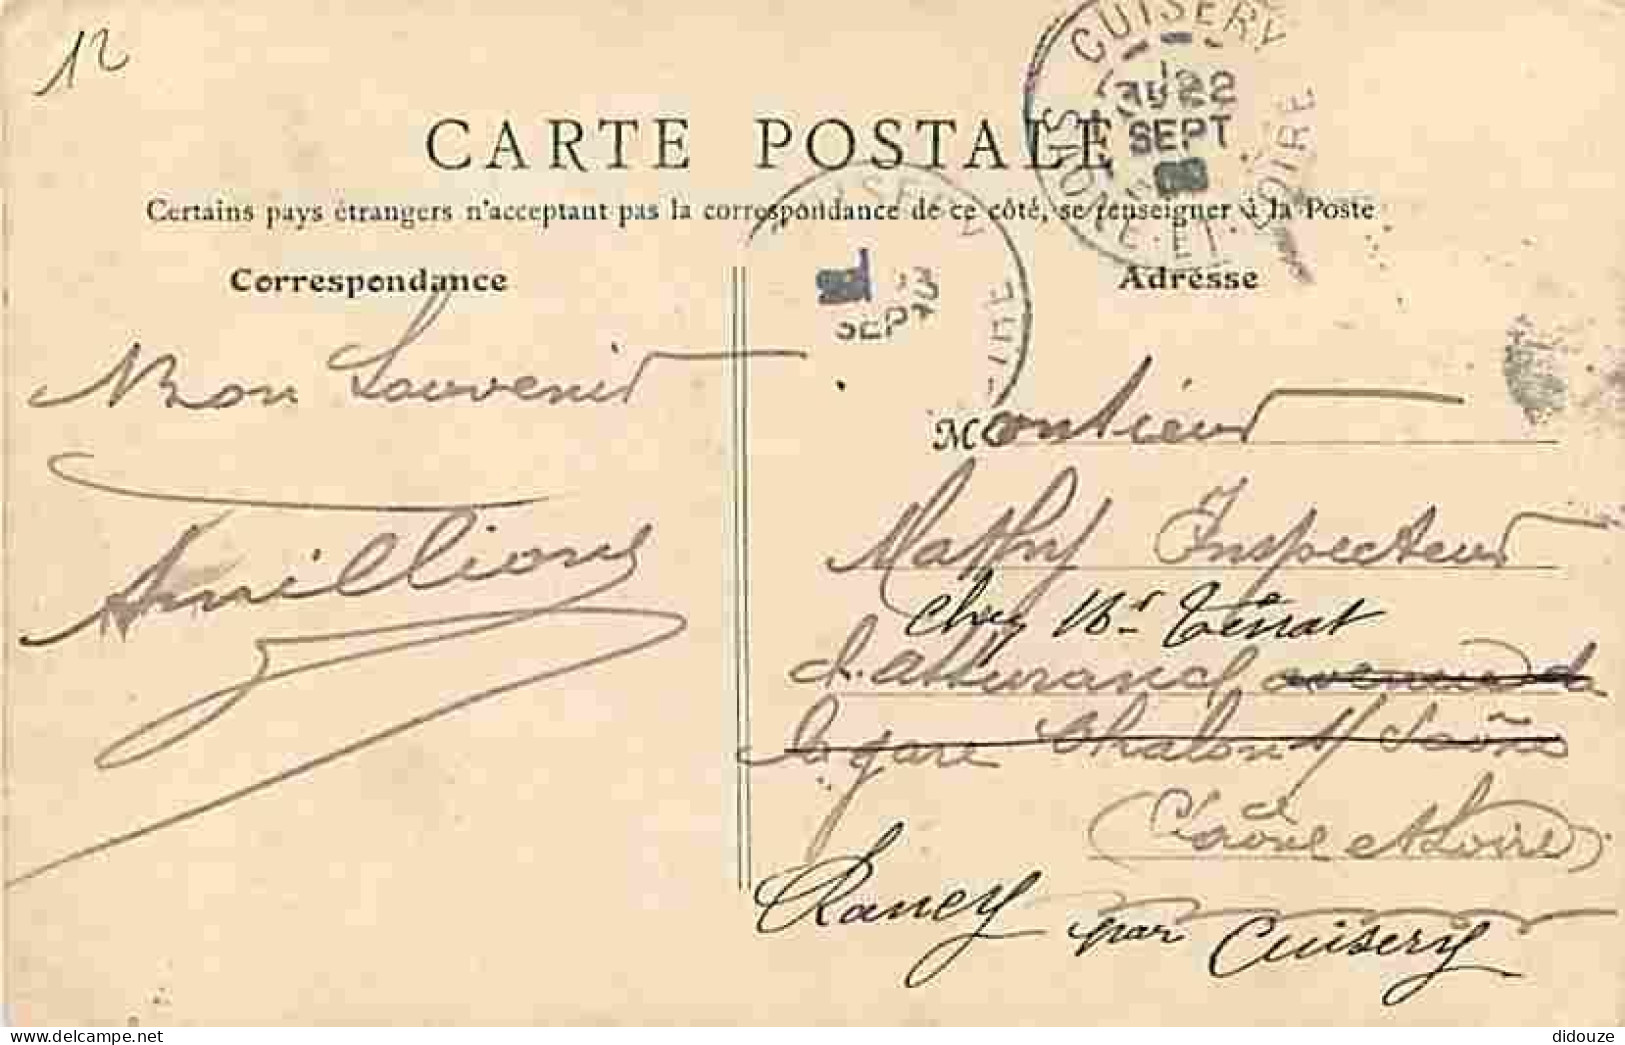 12
CUISERY
22
SEPT
SAONE-ET-LOIRE
CARTE POSTALE
Certains pays étrangers n'acceptant pas la correspondance de ce côté, se renseigner à la Poste
Correspondance
Adresse
SEPT
Bon Souvenir
Monsieur
Mathy Inspecteur
chez Mr Ténat
d'assurance avenue de
la gare Chalon s/ Saône
Saône et Loire
Rancy par Cuisery
delcampe.net
didouze